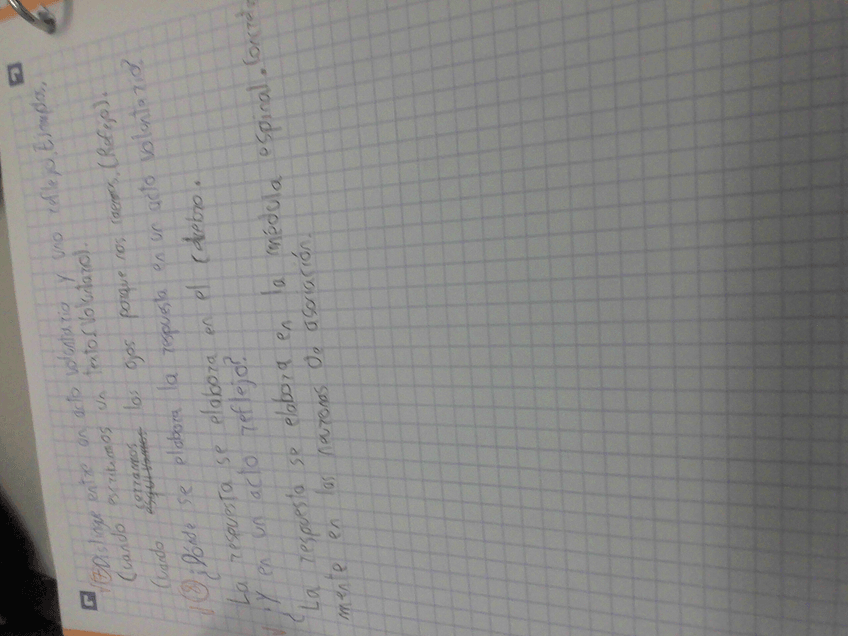 7 Distingue entre un acto voluntario y uno reflejo. Ejemplos.
Cuando escribimos un texto (Voluntario).
Cuando cerramos los ojos porque nos caemos. (Reflejo).
8 ¿Dónde se elabora la respuesta en un acto voluntario?
La respuesta se elabora en el cerebro.
¿Y en un acto reflejo?
La respuesta se elabora en la médula espinal. Concreta
mente en las neuronas de asociación.